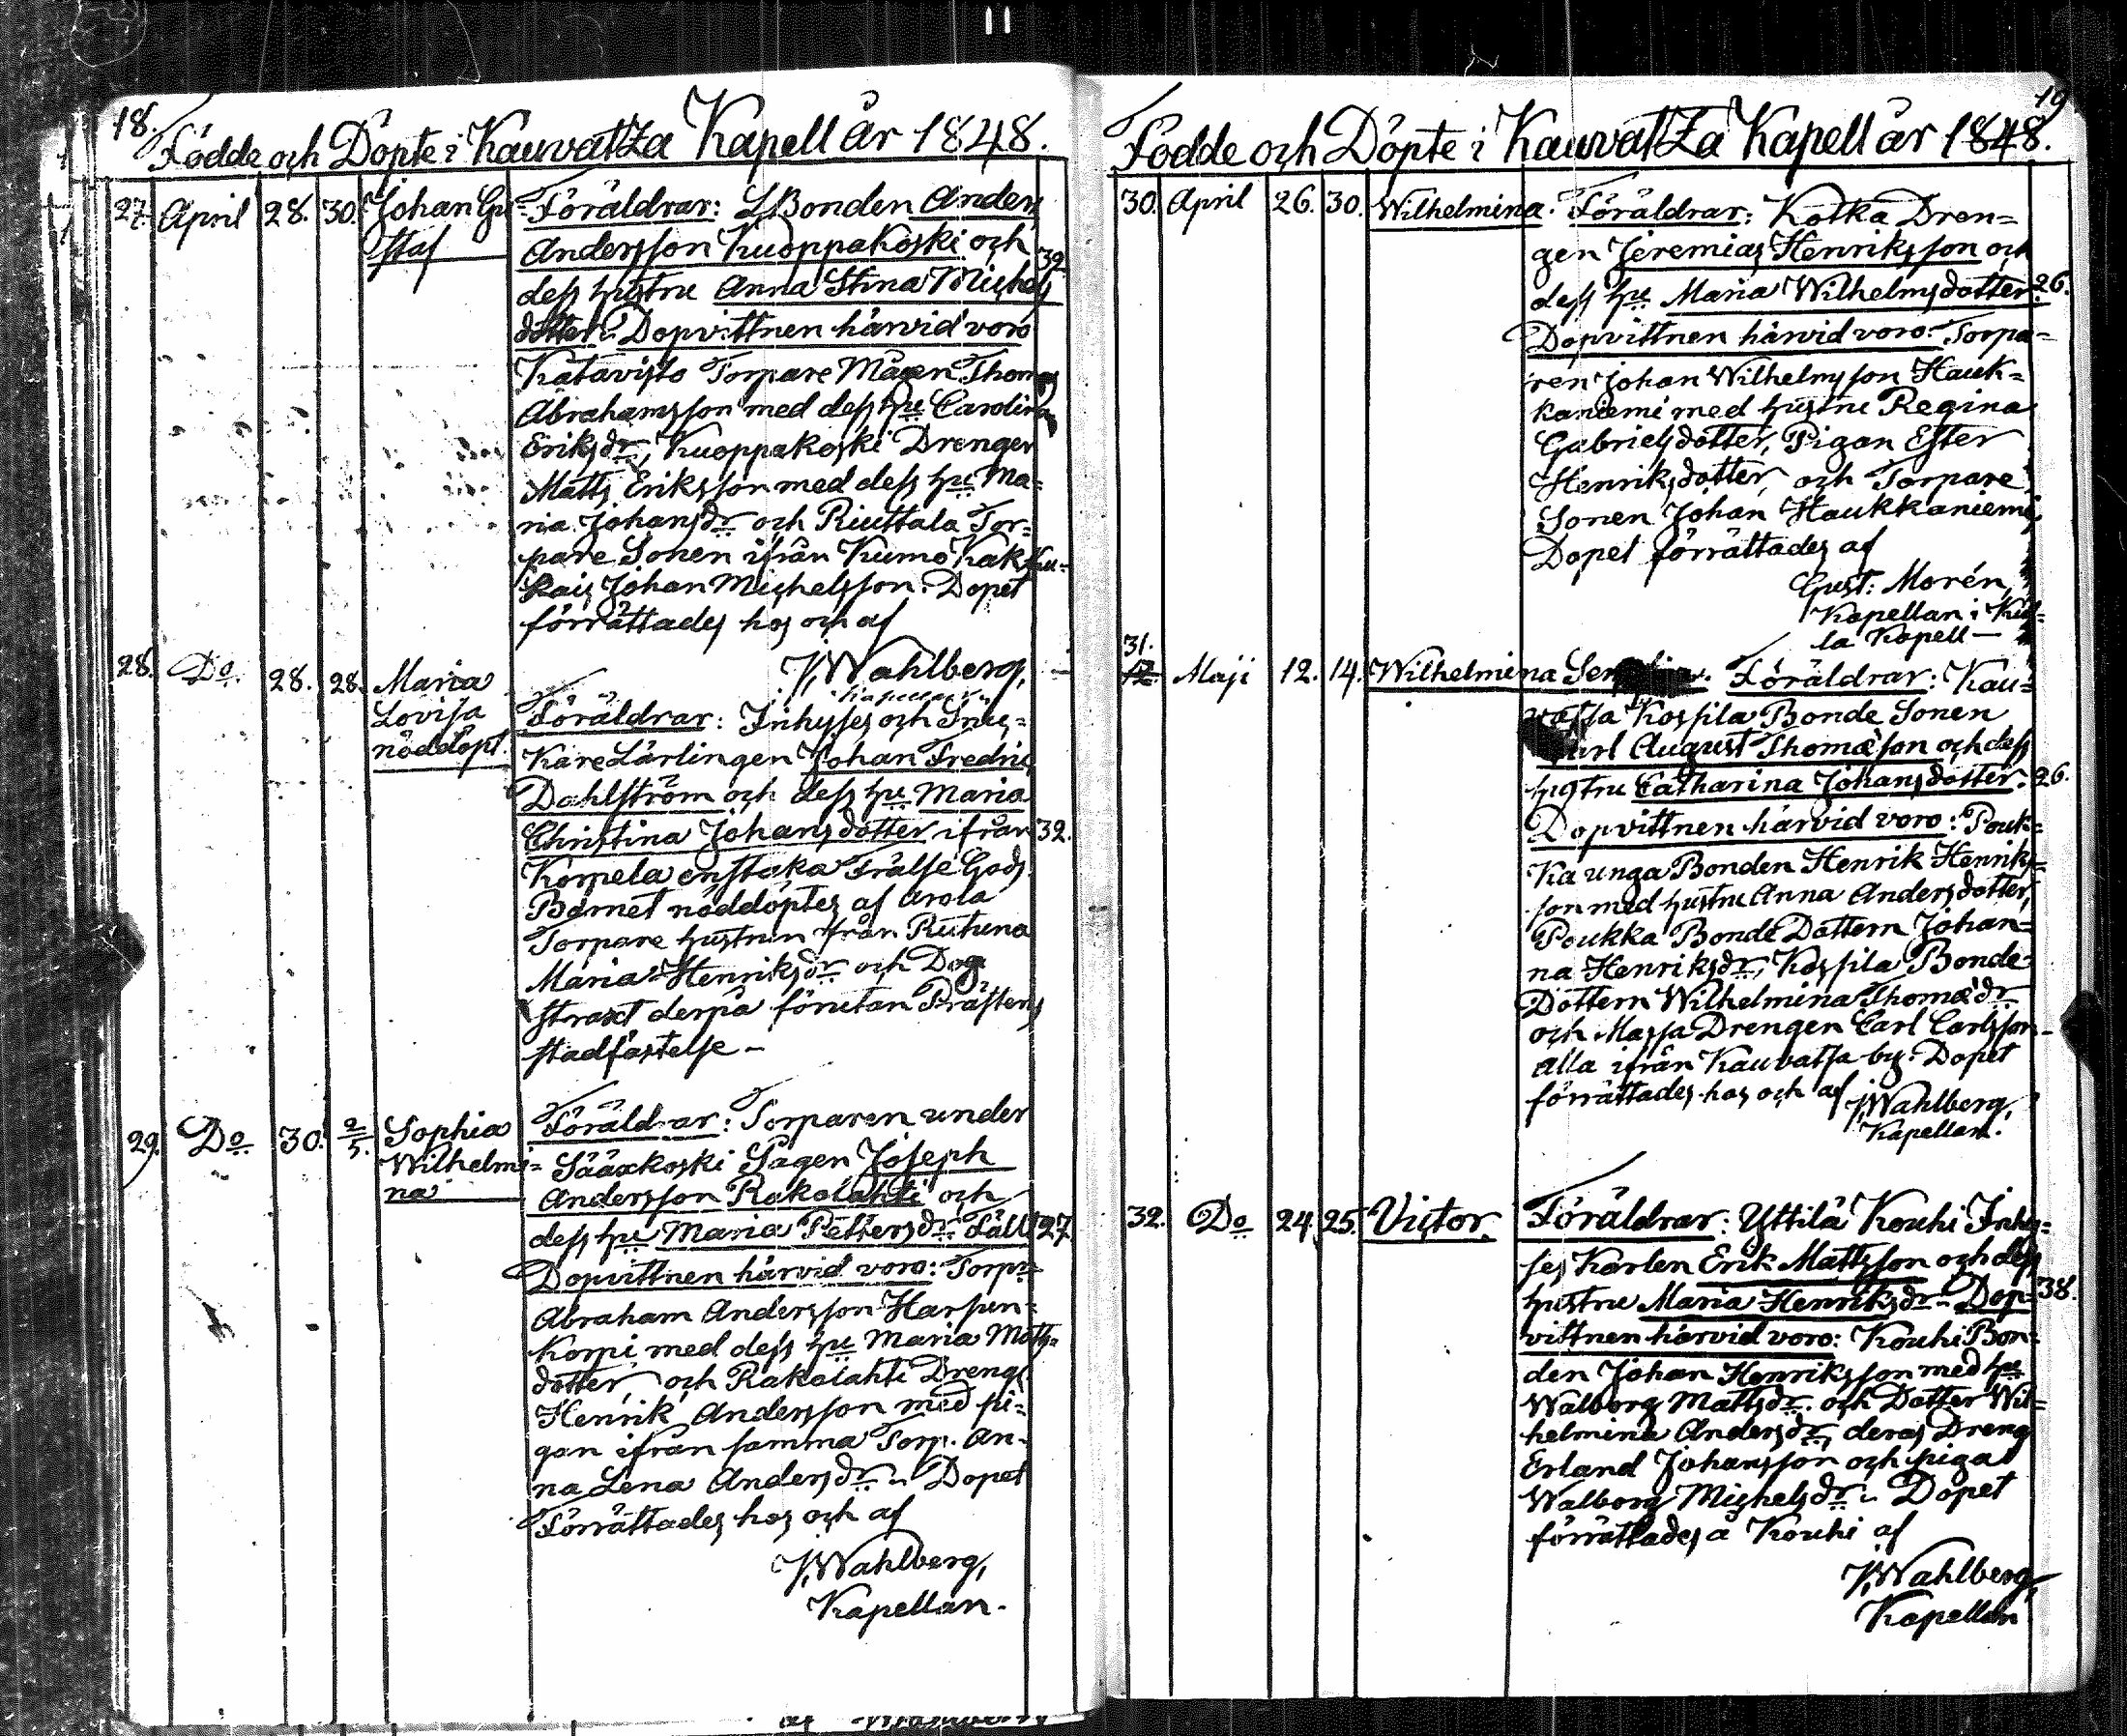 18.
Födde och Döpte i KauvatZa Kapell år 1848.
27. April 28. 30. Johan Gu=
staf
Föräldrar: L,Bonden Anders
Andersson Kuoppakoski och
dess hustru Anna Stina Michels
dotter. Dopvittnen härvid voro
39.
Katavisto Torpare Mågen Thomas
Abrahamsson med dess hu Carolina
Eriksdr, Kuoppakoski Drengen
Matts Eriksson med dess hu Ma=
ria Johansdr och Riuttala Tor=
pare Sonen ifrån Kumo Kakku=
Johan Michelsson. Dopet
förrättades hos och af
J,Wahlberg,
Kapellan
28. Do 28. 28. Maria
Lovisa
nöddöpt.
Föräldrar: Inhyses och Snic=
kare Lärlingen Johan Fredric
Dahlström och dess hu Maria
Christina Johansdotter ifrån 32.
Korpela enstaka Frälse Gods
Barnet nöddöptes af Arola
Torpare hustrun från Ruhuna
Maria Henriksdr och Dog
straxt derpå förutan Prästens
stadfästelse –
29. Do 30. 2/5. Sophia
Wilhelmi=
na
Föräldrar: Torparen under
Sääxkoski Sågen Joseph
Andersson Rakolahti och
dess hu Maria Pettersdr Fäll 27
Dopvittnen härvid voro: Torpn
Abraham Andersson Harsun=
korpi med dess hu Maria Matts=
dotter, och Rakolahti Dreng
Henrik Andersson med pi=
gan ifrån samma Torp. An=
na Lena Andersdr. Dopet
förrättades hos och af
J,Wahlberg,
Kapellan.
19
Födde och Döpte i KauvatZa Kapell år 1848.
30. April 26. 30. Wilhelmina.
Föräldrar: Kotka Dren=
gen Jeremias Henriksson och
dess hu Maria Wilhelmsdotter. 26.
Dopvittnen härvid voro: Torpa=
ren Johan Wilhelmsson Hauk=
kaniemi med hustru Regina
Gabrielsdotter, Pigan Ester
Henriksdotter, och Torpare
Sonen Johan Haukkaniemi,
Dopet förrättades af
Gust: Morén,
Kapellan i Kiu=
la Kapell –
31.
12. Maji 12. 14. Wilhelmina
Föräldrar: Kau=
vatsa Kossila Bonde Sonen
Karl August Thomæson och dess
hustru Catharina Johansdotter. 26.
Dopvittnen härvid voro: Pouk=
ka unga Bonden Henrik Henriks=
son med hustru Anna Andersdotter,
Poukka Bonde Dottern Johan=
na Henriksdr, Kossila Bonde
Dottern Wilhelmina Thomædr
och Massa Drengen Carl Carlsson
alla ifrån Kauvatsa by. Dopet
förrättades hos och af J,Wahlberg,
Kapellan.
32. Do 24. 25. Victor.
Föräldrar: Yttilä Kouhi Inhy=
ses Karlen Erik Mattsson och dess
hustru Maria Henriksdr. Dop= 38.
vittnen härvid voro: Kouhi Bon=
den Johan Henriksson med hu
Walborg Mattsdr. och Dotter Wil=
helmina Andersdr, deras Dreng
Erland Johansson och piga
Walborg Michelsdr. Dopet
förrättades å Kouhi af
J,Wahlberg,
Kapellan